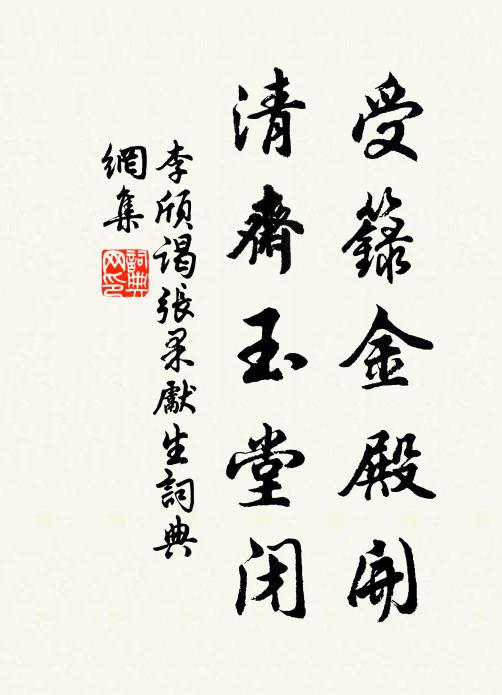 受籙金殿開
清齋玉堂閉
李頎謁張果獻生詞典
網集
詞典网印